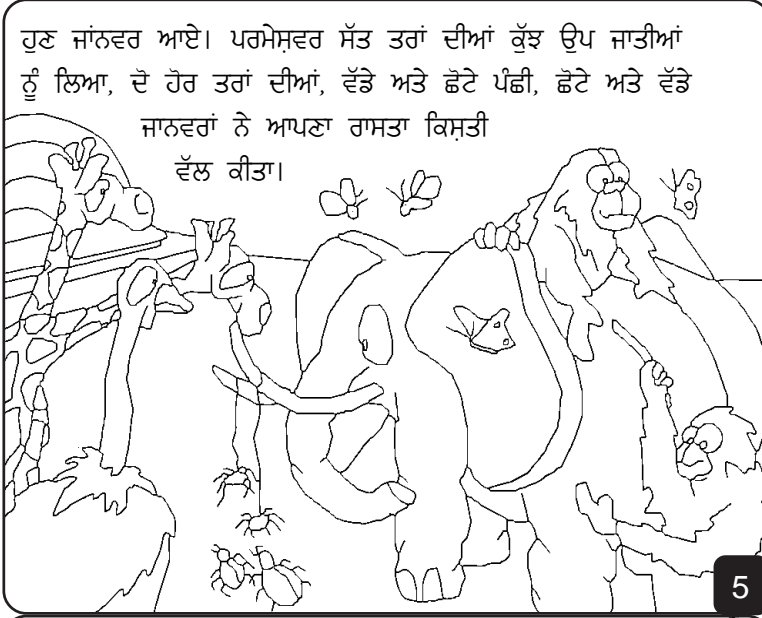 ਹੁਣ ਜਾਂਨਵਰ ਆਏ। ਪਰਮੇਸ਼ਵਰ ਸੱਤ ਤਰਾਂ ਦੀਆਂ ਕੁੱਝ ਉਪ ਜਾਤੀਆਂ
ਨੂੰ ਲਿਆ, ਦੋ ਹੋਰ ਤਰਾਂ ਦੀਆਂ, ਵੱਡੇ ਅਤੇ ਛੋਟੇ ਪੰਛੀ, ਛੋਟੇ ਅਤੇ ਵੱਡੇ
ਜਾਨਵਰਾਂ ਨੇ ਆਪਣਾ ਰਾਸਤਾ ਕਿਸ਼ਤੀ
ਵੱਲ ਕੀਤਾ।
5